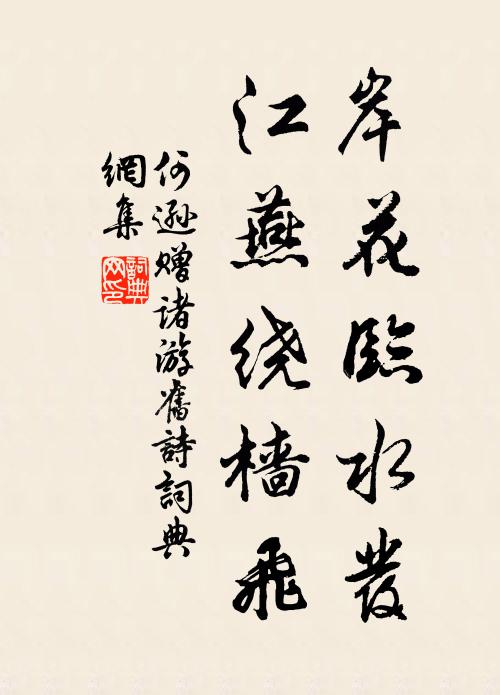 岸花臨水發
江燕绕檣飛
何遜赠诸游舊詩詞典
網集
詞典
网印